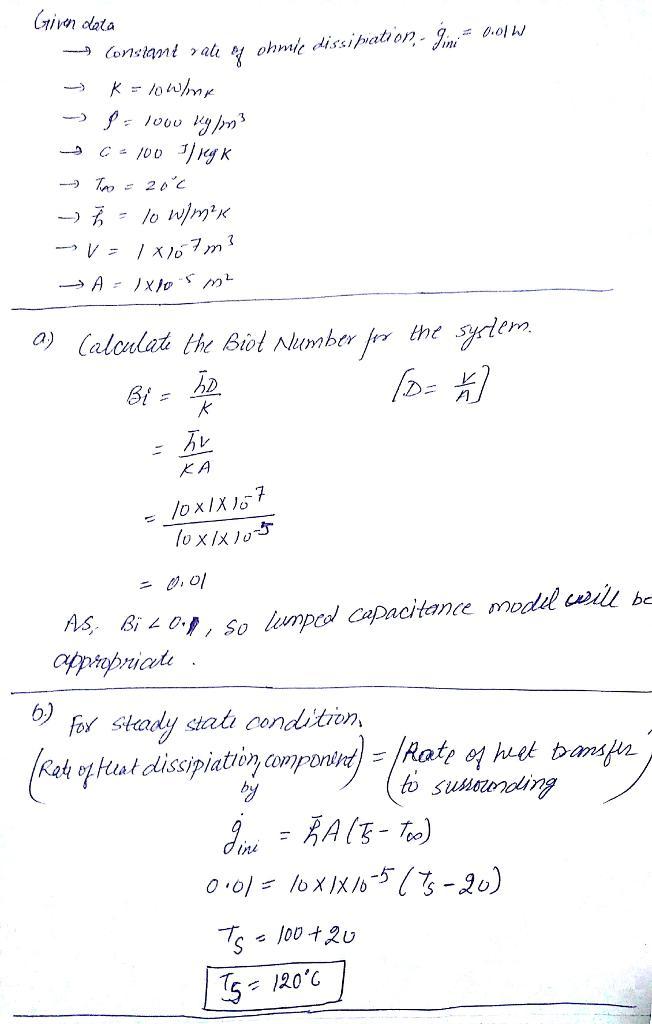 Given data
→ Constant rate of ohmic dissipation, - ġini = 0.01W
→ K = 10 W/mK
→ ρ = 1000 Kg/m³
→ C = 100 J/kgK
→ T∞ = 20°C
→ h̄ = 10 W/m²K
→ V = 1×10⁻⁷ m³
→ A = 1×10⁻⁵ m²
a) Calculate the Biot Number for the system.
Bi = h̄D/K [D = V/A]
= h̄V/KA
= 10×1×10⁻⁷/10×1×10⁻⁵
= 0.01
AS, Bi < 0.1, so lumped capacitance model will be
appropriate.
b.) For steady state condition,
(Rate of Heat dissipiation by component) = (Rate of heat transfer
to surrounding)
ġini = h̄A(Ts - T∞)
0.01 = 10×1×10⁻⁵ (Ts - 20)
Ts = 100 + 20
Ts = 120°C